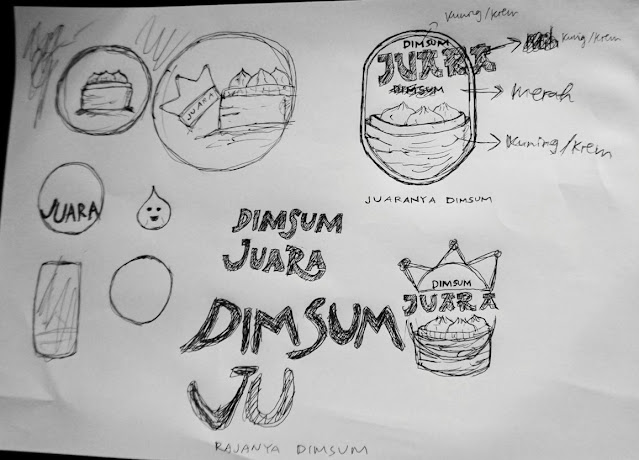 Kuning/Krem
DIMSUM
JUARA
DIMSUM
Kuning/Krem
Merah
Kuning/Krem
JUARANYA DIMSUM
JUARA
JUARA
DIMSUM
JUARA
DIMSUM
JUARA
DIMSUM
JU
RAJANYA DIMSUM